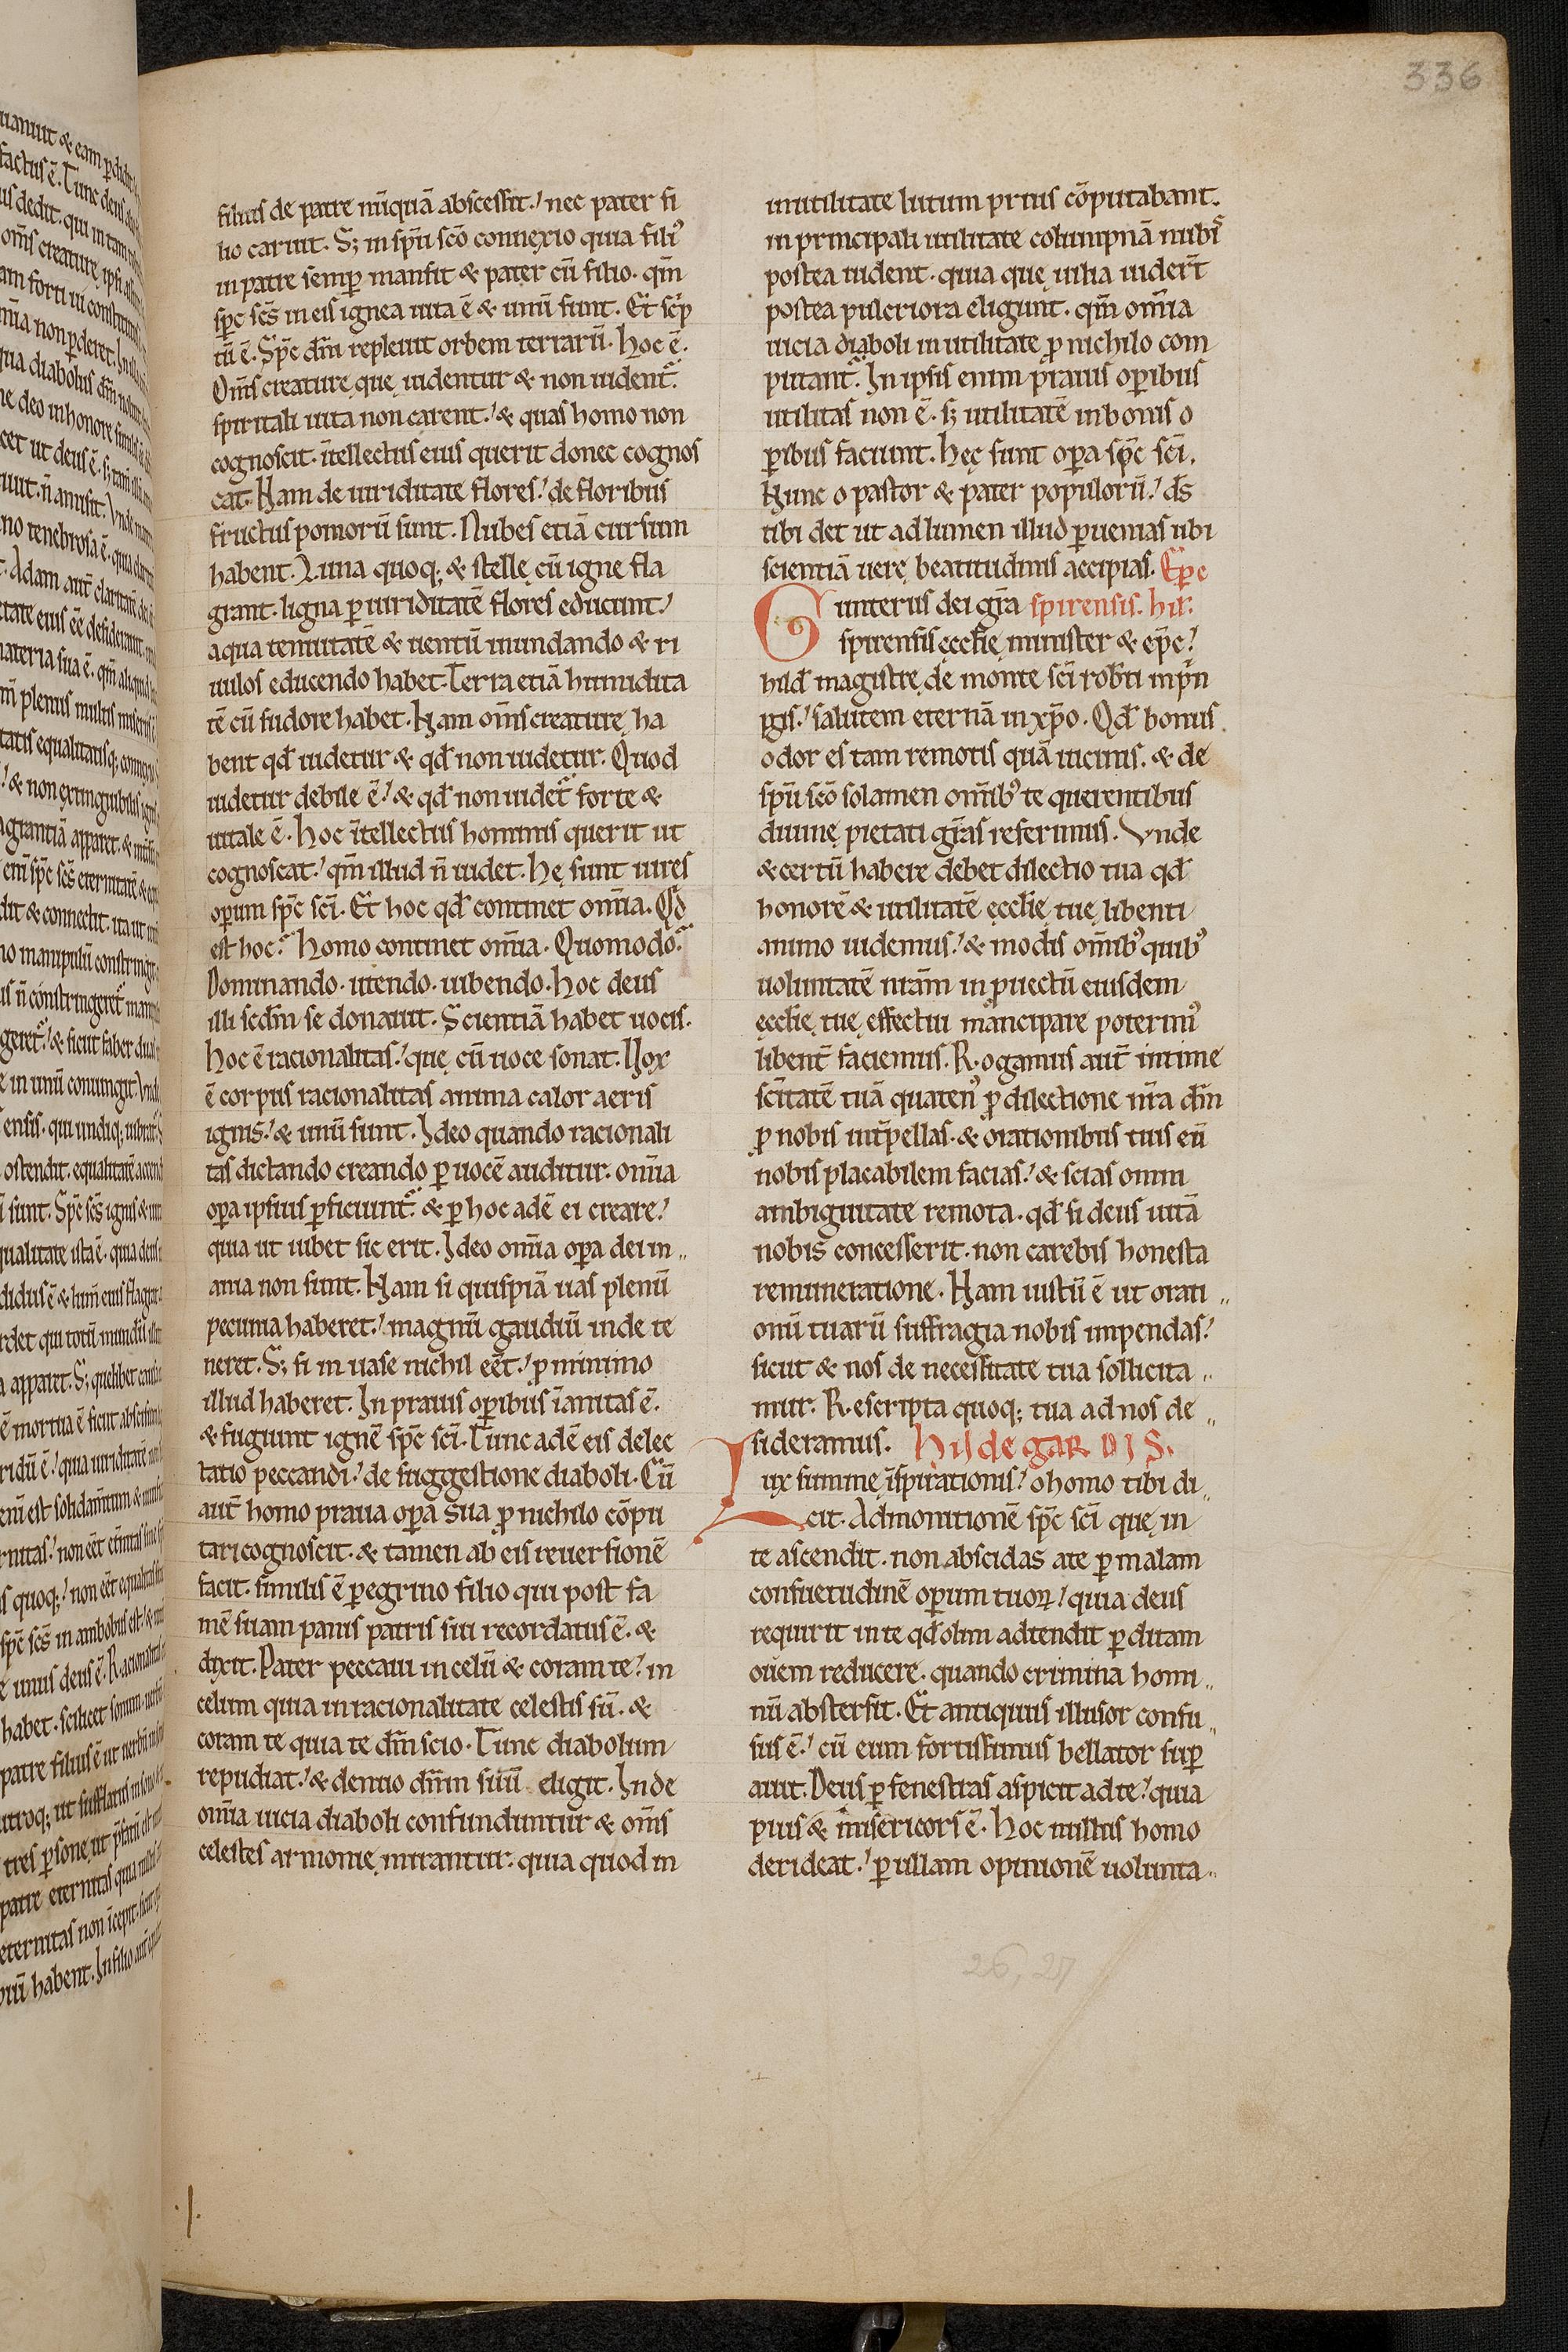 336
filius de patre nūquā abscessit. nec pater fi
lio caruit. S; in sp̄u sc̄o connexio quia fili9
in patre semꝑ mansit & pater cū filio. qm̄
sp̄c sc̄s in eis ignea uita ē & unū sunt. Et sc̄p
tū ē. Sp̄c dn̄i repleuit orbem terrarū. hoc ē.
Om̄s creaturę quę uidentur & non uident᷑.
spiritali uita non carent. & quas homo non
cognoscit. ītellectus eius querit donec cognos
cat. Nam de uiriditate flores. de floribus
fructus pomorū sunt. Nubes etiā cursum
habent. Luna quoq; & stellę cū igne fla
grant. ligna ꝑ uiriditatē flores educunt.
aqua tenuitatē & uentū inundando & ri
uulos educendo habet. Terra etiā humidita
tē cū sudore habet. Nam om̄s creaturę ha
bent qd̄ uidetur & qd̄ non uidetur. Quod
uidetur debile ē. & qd̄ non uidet᷑ forte &
uitale ē. hoc ītellectus hominis querit ut
cognoscat. qm̄ illud n̄ uidet. hę sunt uires
oꝑum sp̄c sc̄i. Et hoc qd̄ continet om̄ia. Qd
est hoc. homo continet om̄ia. Quomodo.
Dominando. utendo. iubendo. hoc deus
illi scd̄m se donauit. Scientiā habet uocis.
hoc ē racionalitas. quę cū uoce sonat. Uox
ē corpus racionalitas anima calor aeris
ignis. & unū sunt. Ideo quando racionali
tas dictando creando ꝑ uocē auditur. om̄ia
oꝑa ipsius ꝑficiunt᷑. & ꝑ hoc adē ei creare.
quia ut iubet sic erit. Ideo om̄ia oꝑa dei in
ania non sunt. Nam si quispiā uas plenū
pecunia haberet. magnū gaudiū inde te
neret. S; si in uase nichil eēt. ꝓ minimo
illud haberet. In prauis oꝑibus īanitas ē.
& fugiunt ignē sp̄c sc̄i. Tunc adē eis delec
tatio peccandi. de suggestione diaboli. Cū
aut̄ homo praua oꝑa sua ꝓ nichilo cōpu
tari cognoscit. & tamen ab eis reuersionē
facit. similis ē ꝑegrino filio qui post fa
mē suam panis patris sui recordatus ē. &
dixit. Pater peccaui in celū & coram te. in
celum quia in racionalitate celestis sū. &
coram te quia te dn̄m scio. Tunc diabolum
repudiat. & denuo dn̄m suū eligit. Inde
om̄ia uicia diaboli confunduntur & om̄s
celestes armonię mirantur. quia quod in
inutilitate lutum prius cōputabant.
in principali utilitate columpnā nubis
postea uident. quia quę uilia uider̄t
postea pulcriora eligunt. qm̄ om̄ia
uicia diaboli inutilitate ꝓ nichilo com
putant᷑. In ipsis enim prauis oꝑibus
utilitas non ē. s; utilitatē in bonis o
ꝑibus faciunt. hec sunt oꝑa sp̄c sc̄i.
Nunc o pastor & pater populorū. d̄s
tibi det ut ad lumen illud ꝑuenias ubi
scientiā uerę beatitudinis accipias. Ep̄c
Gunterus dei gr̄a spirensis. hil.
spirensis ęccl̄ię minister & ep̄c.
hild̄ magistrę de monte sc̄i rob̄ti inp̄ri
gis. salutem eternā in xp̄o. Qd̄ bonus
odor es tam remotis quā uicinis. & de
sp̄u sc̄o solamen om̄ib9 te querentibus
diuinę pietati gr̄as referimus. Vnde
& certū habere debet dilectio tua qd̄
honorē & utilitatē ęccl̄ię tuę libenti
animo uidemus. & modis om̄ib9 quib9
uoluntatē nr̄am in ꝓuectū eiusdem
ęccl̄ię tuę effectui mancipare poterim9
libent̄ faciemus. Rogamus aut̄ intime
sc̄itatē tuā quaten9 ꝓ dilectione nr̄a dn̄m
ꝓ nobis int̄pellas. & orationibus tuis eū
nobis placabilem facias. & scias omni
ambiguitate remota. qd̄ si deus uitā
nobis concesserit. non carebis honesta
remuneratione. Nam iustū ē ut orati
onū tuarū suffragia nobis impendas.
sicut & nos de necessitate tua sollicita
mur. Rescripta quoq; tua ad nos de
sideramus. hildegarDIS.
Lux summę īspirationis. o homo tibi di
cit. Admonitionē sp̄c sc̄i quę in
te ascendit. non abscidas a te ꝑ malam
consuetudinē oꝑum tuoꝝ. quia deus
requirit in te qd̄ olim adtendit ꝑditam
ouem reducere. quando crimina homi
nū abstersit. Et antiquus illusor confu
sus ē. cū eum fortissimus bellator suꝑ
auit. Deus ꝑ fenestras aspicit ad te. quia
pius & misericors ē. hoc nullus homo
derideat. ꝑ ullam opinionē uolunta
26, 27